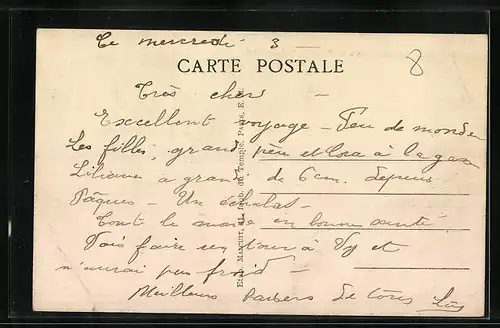 Ce mercredi 3 —
8
CARTE POSTALE
Très chers —
Excellent voyage – Peu de monde
Les filles, grand père et Lora à la gare
Liliane a grandi de 6 cm. depuis
Pâques – Un échalas –
Tout le monde en bonne santé
Vais faire un tour à Vy et
n'aurai pas froid –
Meilleurs baisers de tous
Faub. du Temple, Paris